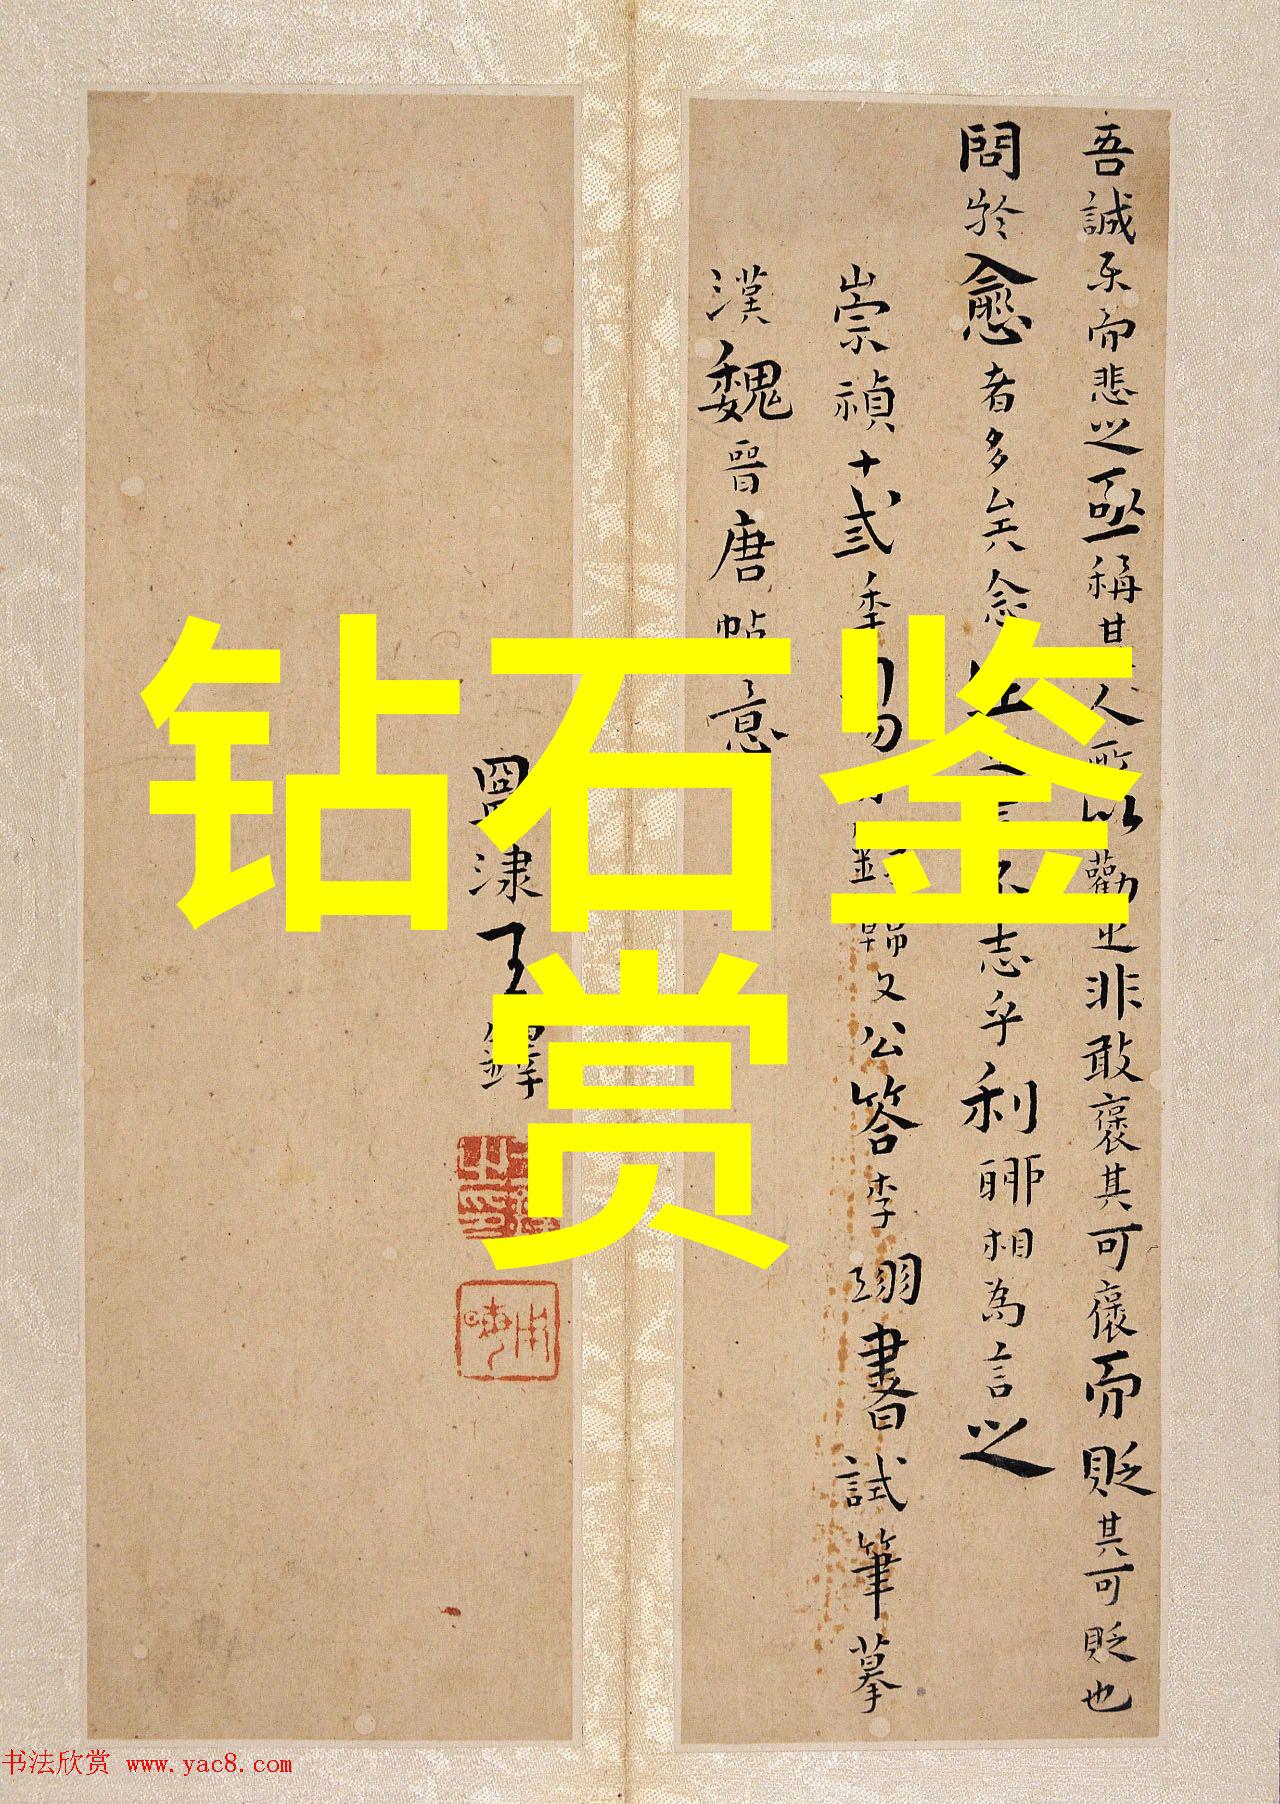 吾誠樂而悲之亟稱其人所以勸之非敢褒其可褒而貶其可貶也
問於愈者多矣念生之言不志乎利聊相為言之
崇禎十弍季 易 韓文公答李翊書試筆摹
漢魏晉唐帖意
王鐸
钻石鉴
赏
书法欣赏 www.yac8.com